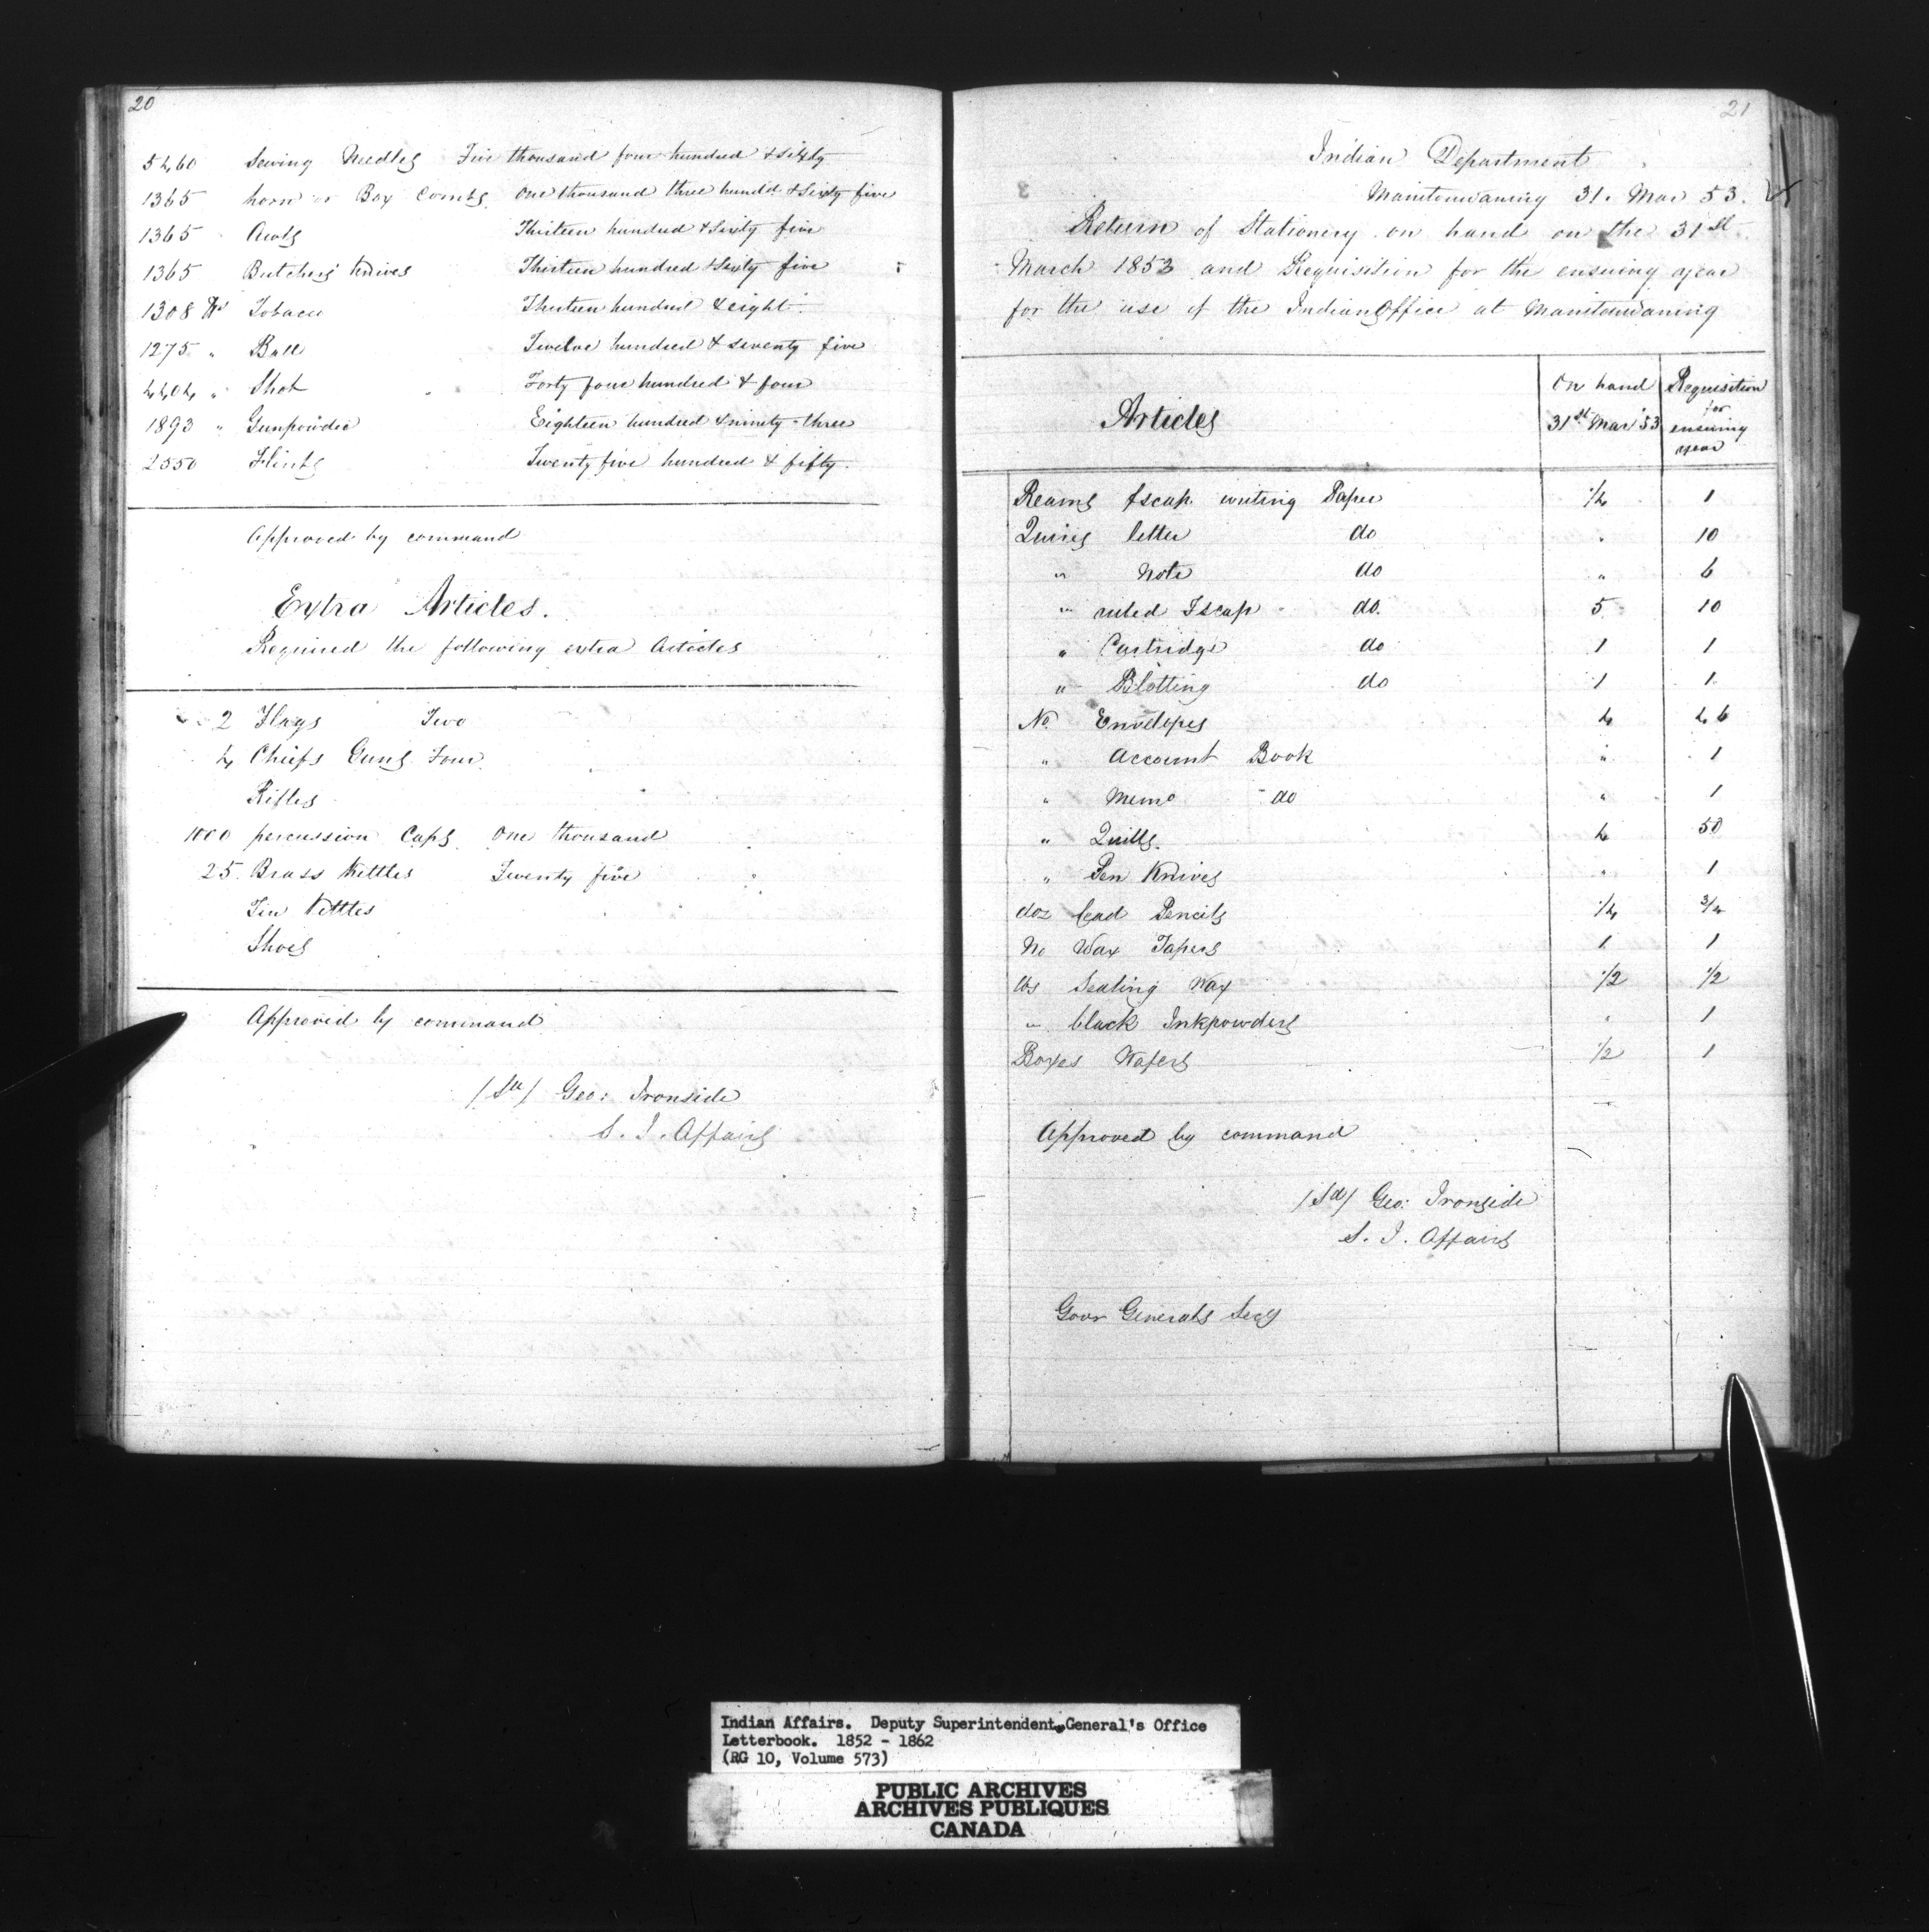 20
5460 Sewing Needles Five thousand four hundred & sixty
1365 horn or Box Combs One thousand three hundd & Sixty five
1365 Awls Thirteen hundred & Sixty five
1365 Butchers Knives Thirteen hundred & Sixty five
1308 lbs Tobacco Thirteen hundred & eight
1275 " Ball Twelve hundred & seventy five
4404 " Shot Forty four hundred & four
1893 " Gunpowder Eighteen hundred & ninety-three
2550 Flints Twenty five hundred & fifty.
Approved by command
Extra Articles.
Required the following extra Articles
2 Flags Two
4 Chiefs Guns Four
Rifles
1000 percussion Caps One thousand
25 Brass Kettles Twenty five
Tin Kettles
Shoes
Approved by command
/Sd/ Geo: Ironside
S. I. Affairs
21
Indian Department
Manitowaning 31. Mar 53.
Return of Stationery on hand on the 31st
March 1853 and Requisition for the ensuing year
for the use of the Indian Office at Manitowaning
Articles
On hand 31st Mar '53
Requisition for ensuing year
Reams fscap writing Paper 1/4 1
Quires letter do " 10
" Note do " 6
" ruled Fscap do. 5 10
" Cartridge do 1 1
" Blotting do 1 1
No. Envelopes 4 46
" Account Book " 1
" Memo do " 1
" Quills. 4 50
" Pen Knives " 1
doz lead Pencils 1/4 3/4
No Wax Tapers 1 1
lbs Sealing Wax 1/2 1/2
" black Inkpowders " 1
Boxes Wafers 1/2 1
Approved by command
/Sd/ Geo: Ironside
S. I. Affairs
Govr Generals Secy
Indian Affairs. Deputy Superintendent General's Office
Letterbook. 1852 - 1862
(RG 10, Volume 573)
PUBLIC ARCHIVES
ARCHIVES PUBLIQUES
CANADA